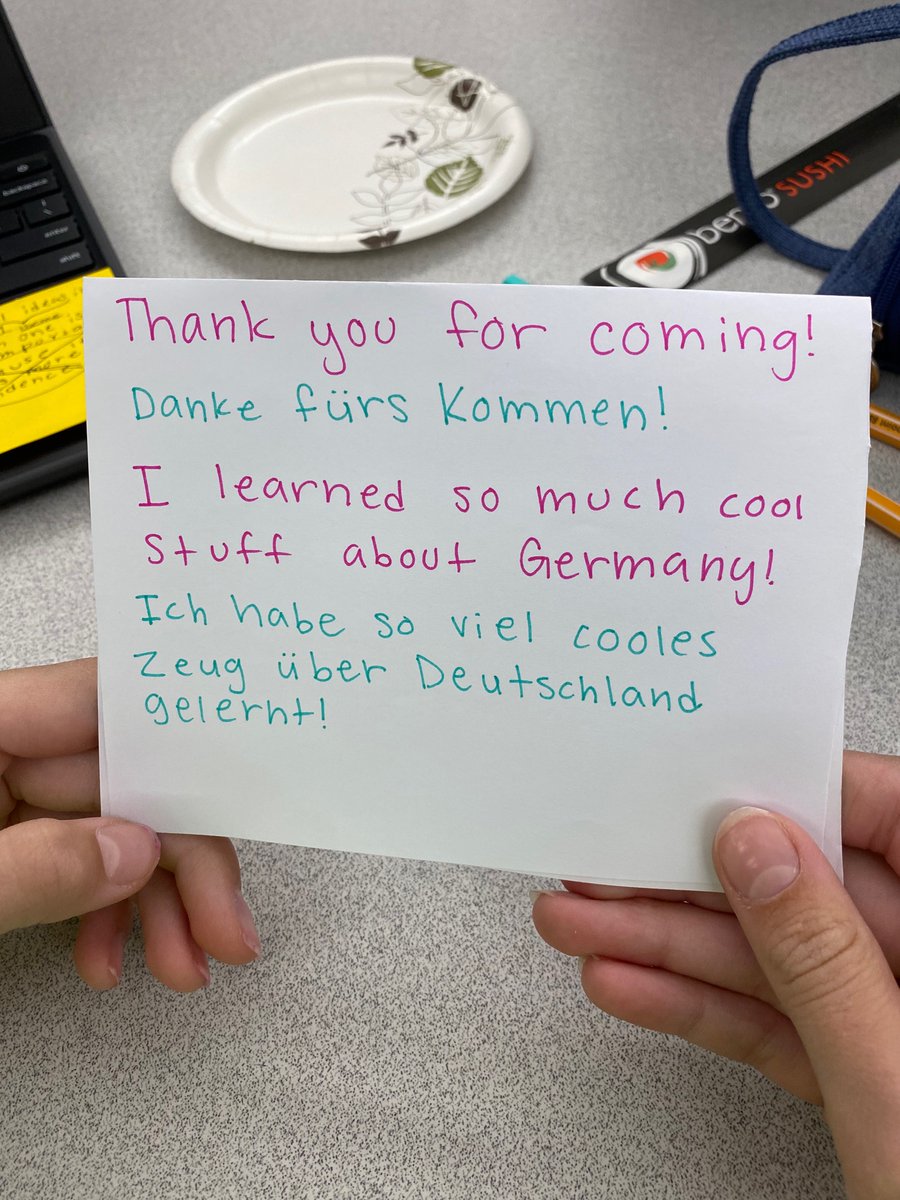 bento SUSHI
enter
ideas
one
Thank you for coming!
Danke fürs Kommen!
I learned so much cool
stuff about Germany!
Ich habe so viel cooles
Zeug über Deutschland
gelernt!